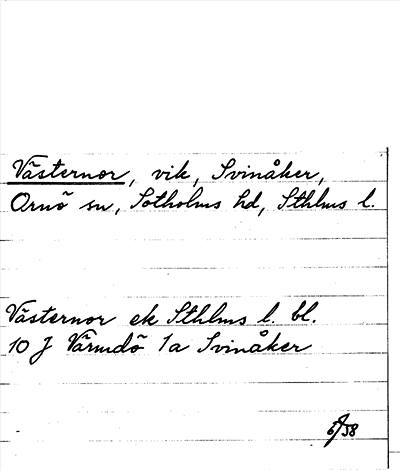 Västernor, vik, Svinåker,
Ornö sn, Sotholms hd, Sthlms l.
Västernor ek Sthlms l. bl.
10 J Värmdö 1a Svinåker